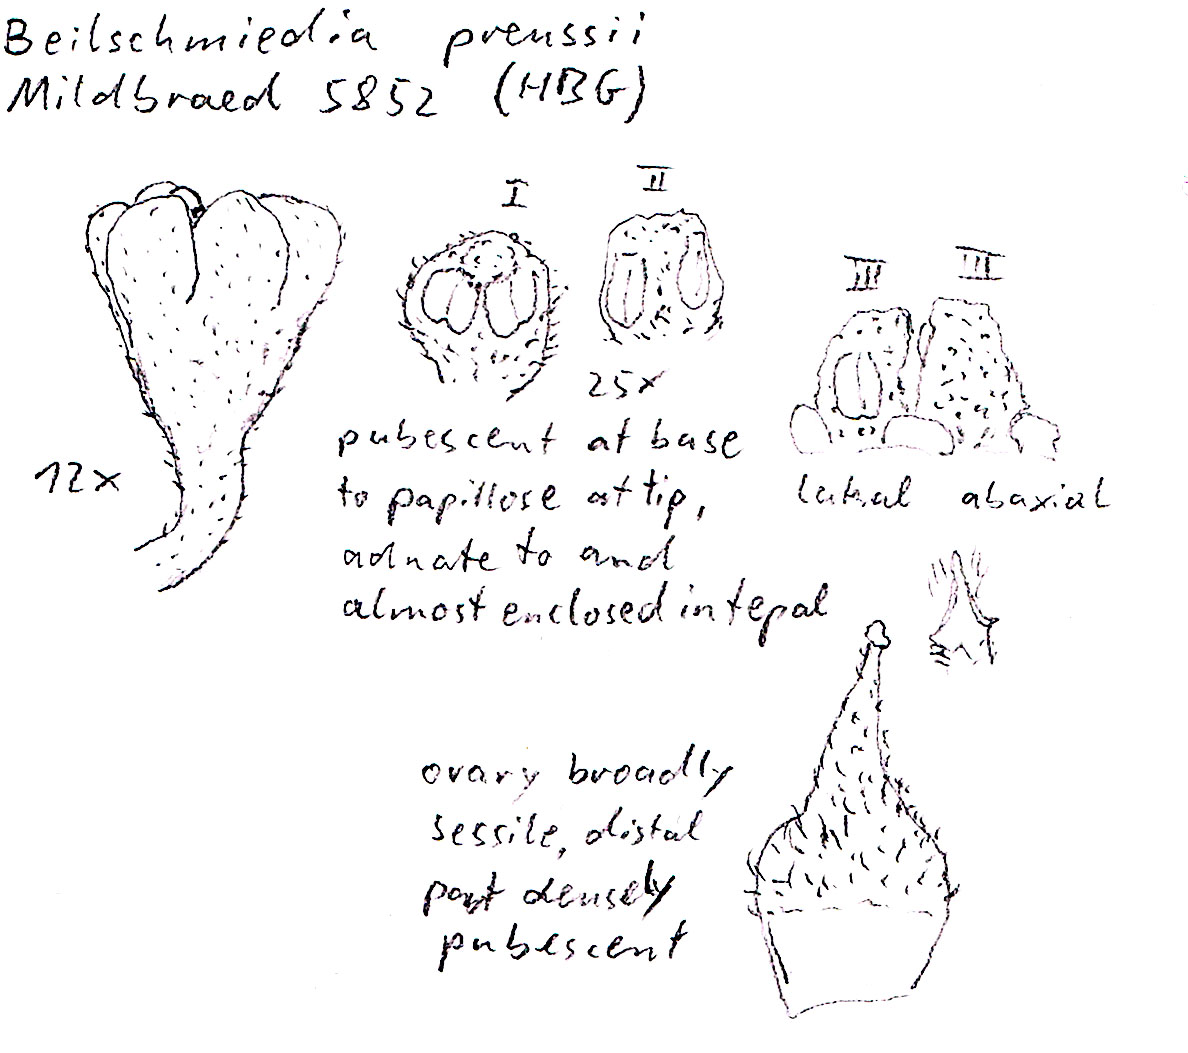 Beilschmiedia preussii
Mildbraed 5852 (HBG)
I
II
III
III
25x
12x
pubescent at base
to papillose at tip,
adnate to and
almost enclosed in tepal
lateral abaxial
ovary broadly
sessile, distal
part densely
pubescent